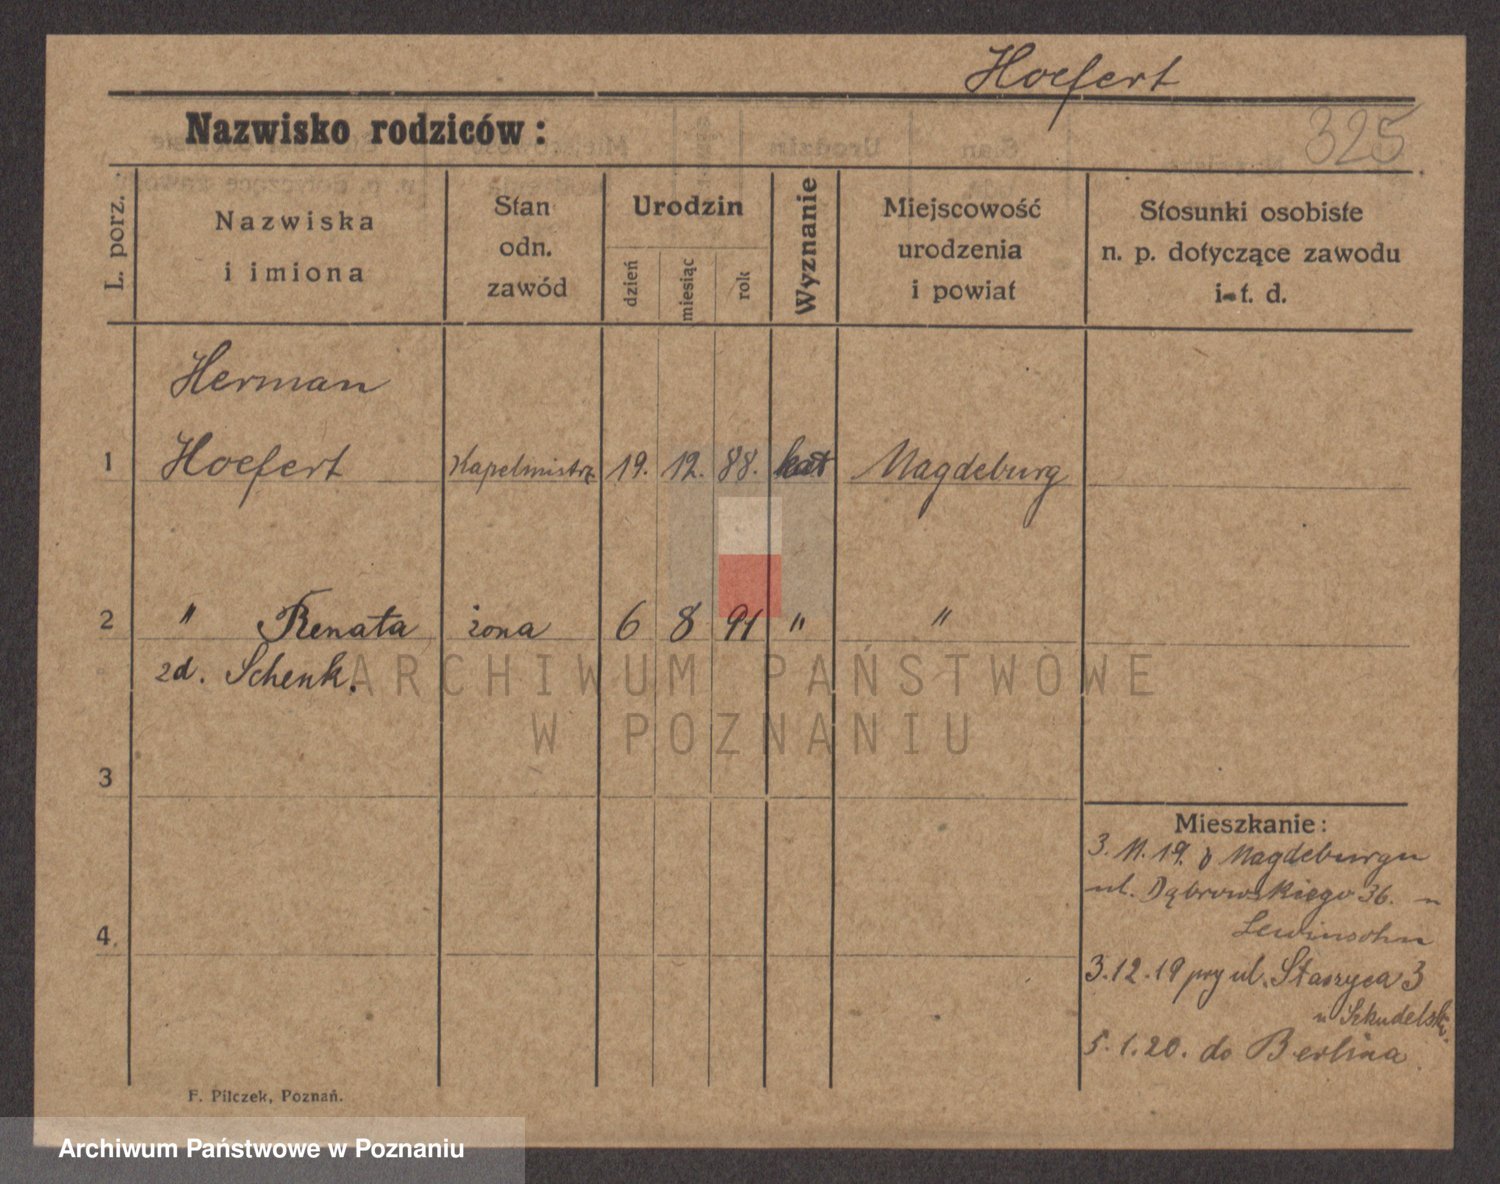 Hoefert
325
Nazwisko rodziców:
L. porz.
Nazwiska
i imiona
Stan
odn.
zawód
Urodzin
dzień
miesiąc
rok
Wyznanie
Miejscowość
urodzenia
i powiat
Stosunki osobiste
n. p. dotyczące zawodu
i t. d.
Herman
1 Hoefert Kapelmistrz 19. 12. 88. kat Magdeburg
2 " Renata żona 6 8 91 " "
zd. Schenk.
ARCHIWUM PAŃSTWOWE
W POZNANIU
3
4
Mieszkanie:
3. 11. 19. z Magdeburgu
ul. Dąbrowskiego 36. u
Lewinsohn
3. 12. 19 przy ul. Staszyca 3
u Szkudelski
5. 1. 20. do Berlina
F. Pilczek, Poznań.
Archiwum Państwowe w Poznaniu